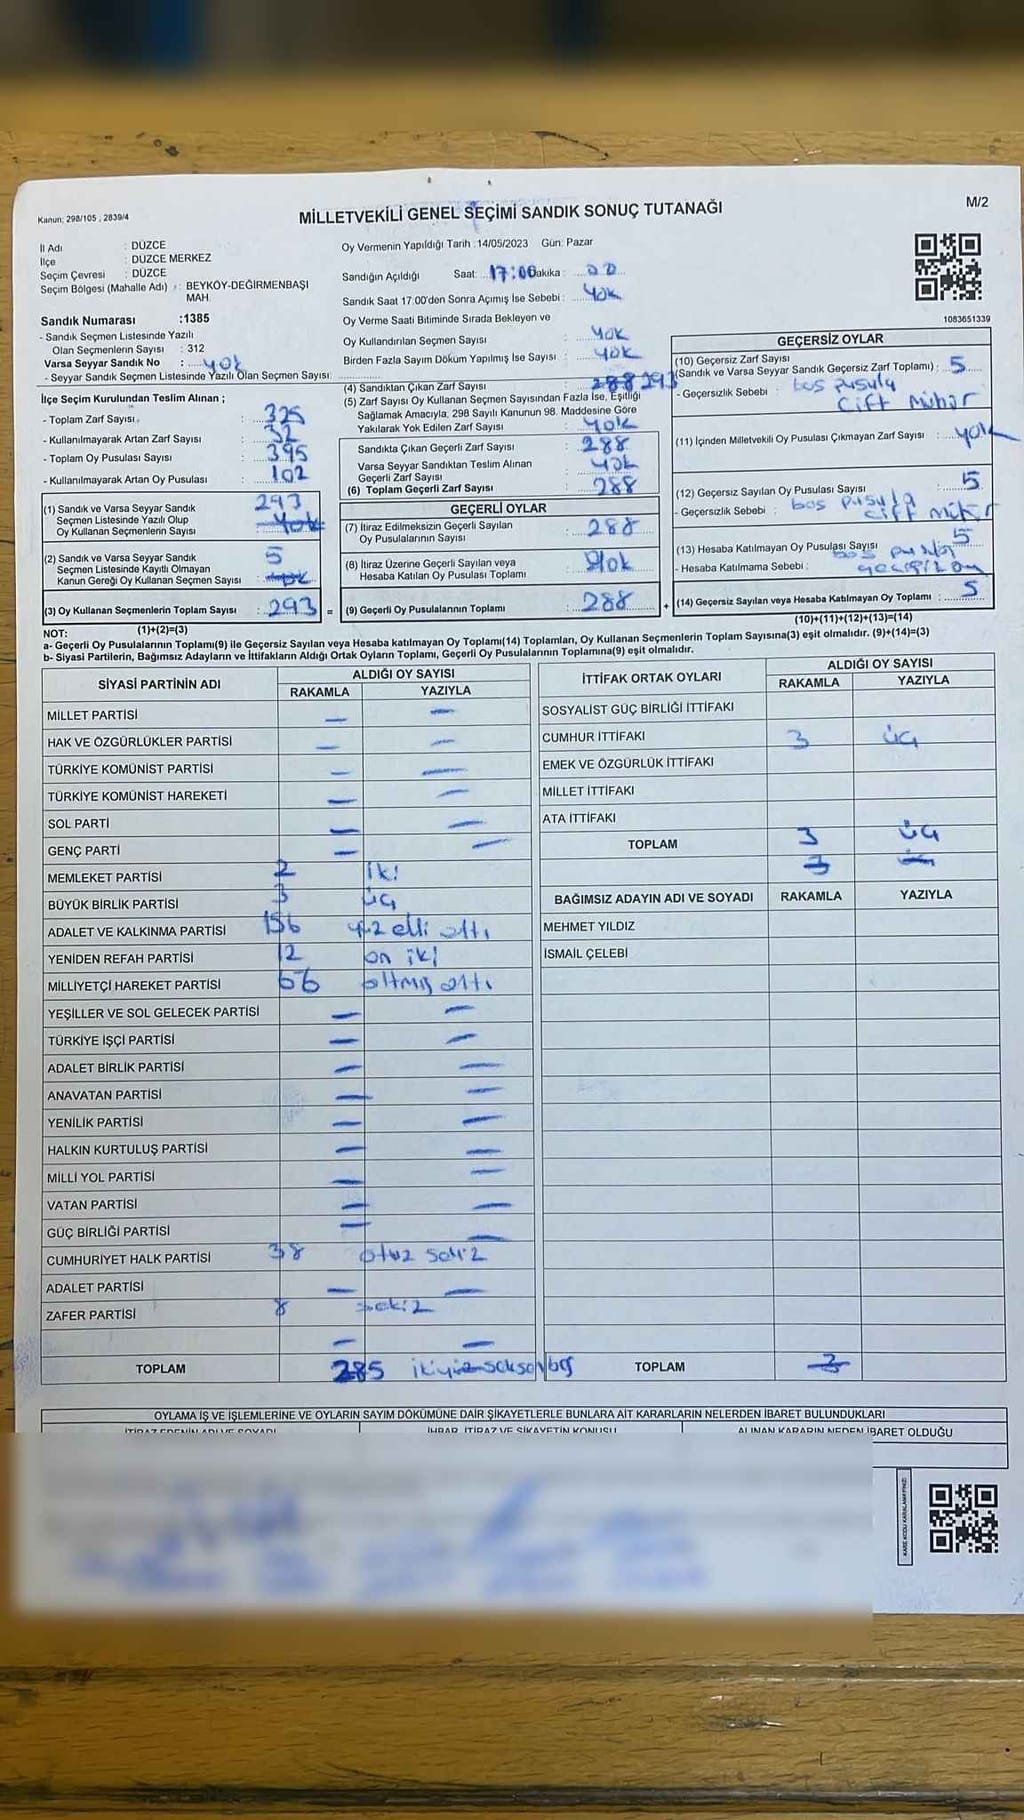 Kanun: 298/105 , 2839/4
MİLLETVEKİLİ GENEL SEÇİMİ SANDIK SONUÇ TUTANAĞI
M/2
İl Adı : DÜZCE
İlçe : DÜZCE MERKEZ
Seçim Çevresi : DÜZCE
Seçim Bölgesi (Mahalle Adı) : BEYKÖY-DEĞİRMENBAŞI MAH.
Sandık Numarası :1385
- Sandık Seçmen Listesinde Yazılı
Olan Seçmenlerin Sayısı : 312
Varsa Seyyar Sandık No : yok
- Seyyar Sandık Seçmen Listesinde Yazılı Olan Seçmen Sayısı:
Oy Vermenin Yapıldığı Tarih :14/05/2023 Gün: Pazar
Sandığın Açıldığı Saat: 17:00 Dakika : 00
Sandık Saat 17:00'den Sonra Açımış İse Sebebi : yok
Oy Verme Saati Bitiminde Sırada Bekleyen ve
Oy Kullandırılan Seçmen Sayısı yok
Birden Fazla Sayım Döküm Yapılmış İse Sayısı : yok
1083651339
İlçe Seçim Kurulundan Teslim Alınan ;
- Toplam Zarf Sayısı : 325
- Kullanılmayarak Artan Zarf Sayısı : 32
- Toplam Oy Pusulası Sayısı : 395
- Kullanılmayarak Artan Oy Pusulası : 102
(1) Sandık ve Varsa Seyyar Sandık
Seçmen Listesinde Yazılı Olup
Oy Kullanan Seçmenlerin Sayısı 293 yok
(2) Sandık ve Varsa Seyyar Sandık
Seçmen Listesinde Kayıtlı Olmayan
Kanun Gereği Oy Kullanan Seçmen Sayısı 5
(3) Oy Kullanan Seçmenlerin Toplam Sayısı : 293 =
(1)+(2)=(3)
(4) Sandıktan Çıkan Zarf Sayısı : 288 293
(5) Zarf Sayısı Oy Kullanan Seçmen Sayısından Fazla İse, Eşitliği
Sağlamak Amacıyla, 298 Sayılı Kanunun 98. Maddesine Göre
Yakılarak Yok Edilen Zarf Sayısı : yok
Sandıkta Çıkan Geçerli Zarf Sayısı : 288
Varsa Seyyar Sandıktan Teslim Alınan
Geçerli Zarf Sayısı : yok
(6) Toplam Geçerli Zarf Sayısı : 288
GEÇERLİ OYLAR
(7) İtiraz Edilmeksizin Geçerli Sayılan
Oy Pusulalarının Sayısı : 288
(8) İtiraz Üzerine Geçerli Sayılan veya
Hesaba Katılan Oy Pusulası Toplamı : yok
(9) Geçerli Oy Pusulalarının Toplamı : 288 +
GEÇERSİZ OYLAR
(10) Geçersiz Zarf Sayısı
(Sandık ve Varsa Seyyar Sandık Geçersiz Zarf Toplamı) : 5
- Geçersizlik Sebebi : boş pusula
Çift Mühür
(11) İçinden Milletvekili Oy Pusulası Çıkmayan Zarf Sayısı : yok
(12) Geçersiz Sayılan Oy Pusulası Sayısı 5
- Geçersizlik Sebebi : boş pusula
Çift Mühür
(13) Hesaba Katılmayan Oy Pusulası Sayısı 5
boş pusula
- Hesaba Katılmama Sebebi :
(14) Geçersiz Sayılan veya Hesaba Katılmayan Oy Toplamı : 5
(10)+(11)+(12)+(13)=(14)
NOT:
a- Geçerli Oy Pusulalarının Toplamı(9) ile Geçersiz Sayılan veya Hesaba katılmayan Oy Toplamı(14) Toplamları, Oy Kullanan Seçmenlerin Toplam Sayısına(3) eşit olmalıdır. (9)+(14)=(3)
b- Siyasi Partilerin, Bağımsız Adayların ve İttifakların Aldığı Ortak Oyların Toplamı, Geçerli Oy Pusulalarının Toplamına(9) eşit olmalıdır.
SİYASİ PARTİNİN ADI ALDIĞI OY SAYISI
RAKAMLA YAZIYLA
MİLLET PARTİSİ — —
HAK VE ÖZGÜRLÜKLER PARTİSİ — —
TÜRKİYE KOMÜNİST PARTİSİ — —
TÜRKİYE KOMÜNİST HAREKETİ — —
SOL PARTİ — —
GENÇ PARTİ — —
MEMLEKET PARTİSİ 2 iki
BÜYÜK BİRLİK PARTİSİ 3 üç
ADALET VE KALKINMA PARTİSİ 156 yüz elli altı
YENİDEN REFAH PARTİSİ 12 on iki
MİLLİYETÇİ HAREKET PARTİSİ 66 altmış altı
YEŞİLLER VE SOL GELECEK PARTİSİ — —
TÜRKİYE İŞÇİ PARTİSİ — —
ADALET BİRLİK PARTİSİ — —
ANAVATAN PARTİSİ — —
YENİLİK PARTİSİ — —
HALKIN KURTULUŞ PARTİSİ — —
MİLLİ YOL PARTİSİ — —
VATAN PARTİSİ — —
GÜÇ BİRLİĞİ PARTİSİ — —
CUMHURİYET HALK PARTİSİ 38 otuz sekiz
ADALET PARTİSİ — —
ZAFER PARTİSİ 8 sekiz
— —
TOPLAM 285 ikiyüz seksen beş
İTTİFAK ORTAK OYLARI ALDIĞI OY SAYISI
RAKAMLA YAZIYLA
SOSYALİST GÜÇ BİRLİĞİ İTTİFAKI
CUMHUR İTTİFAKI 3 üç
EMEK VE ÖZGÜRLÜK İTTİFAKI
MİLLET İTTİFAKI
ATA İTTİFAKI
TOPLAM 3 üç
3 üç
BAĞIMSIZ ADAYIN ADI VE SOYADI RAKAMLA YAZIYLA
MEHMET YILDIZ
İSMAİL ÇELEBİ
TOPLAM 3
OYLAMA İŞ VE İŞLEMLERİNE VE OYLARIN SAYIM DÖKÜMÜNE DAİR ŞİKAYETLERLE BUNLARA AİT KARARLARIN NELERDEN İBARET BULUNDUKLARI
İTİRAZ EDENİN ADI VE SOYADI İHBAR, İTİRAZ VE ŞİKAYETİN KONUSU ALINAN KARARIN NEDEN İBARET OLDUĞU
KARE KODU KARALAMAYINIZ!